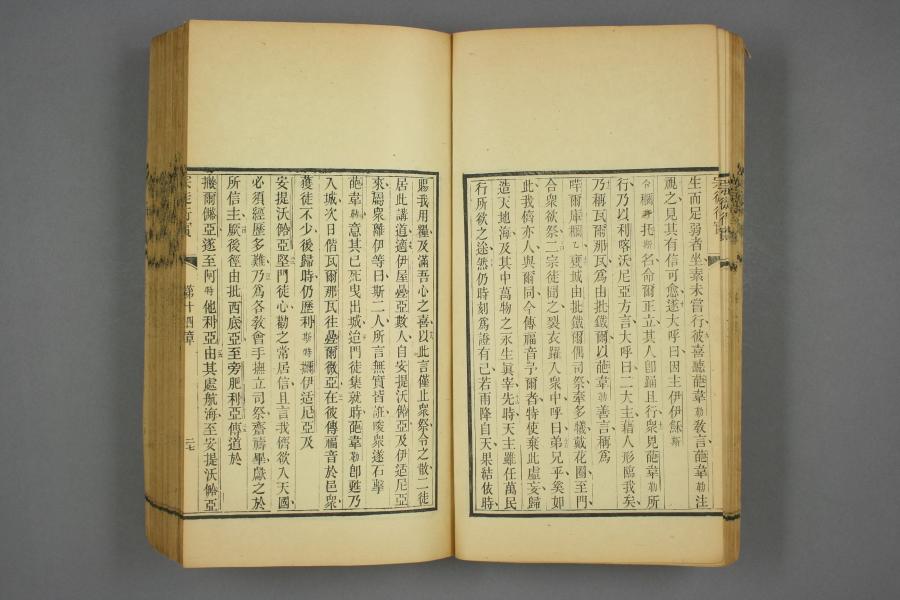 生而足弱者坐素未嘗行彼喜聽葩韋勒敎言葩韋勒注
視之見其有信可愈遂大呼曰因主伊伊穌斯
合爾正立其人卽踊且行衆見葩韋勒所
行乃以利喀沃尼亞方言大呼曰二大主藉人形臨我矣
乃稱瓦爾那瓦爲由批鐵爾以葩韋勒善言稱爲
由批鐵爾偶司祭牽多犢戴花圈至門
合衆欲祭二宗徒聞之裂衣躍入衆中呼曰弟兄乎奚如
此我儕亦人與爾同今傳福音予爾者特使棄此虛妄歸
造天地海及其中萬物之永生眞宰先時天主雖任萬民
行所欲之途然仍時刻爲證有己若雨降自天果結依時
賜我用糧及滿吾心之喜以此言僅止衆祭令之散二徒
居此講道適伊屋疊亞數人自安提沃俙亞及伊适尼亞
來屬衆離伊等曰斯二人所言無實皆誑唆衆遂石擊
葩韋勒意其已死曳出城迨門徒集就時葩韋勒卽甦乃
入城次日偕瓦爾那瓦往疊爾微亞在彼傳福音於邑衆
獲徒不少後歸時仍歷利斯特伊适尼亞及
安提沃俙亞堅門徒心勸之常居信且言我儕欲入天國
必須經歷多難乃爲各敎會手擁立司祭齋禱畢獻之於
所信主厥後徑由批西底亞至旁肥利亞傳道於
撒爾儞亞遂至阿他利亞由其處航海至安提沃俙亞
宗徒行實 第十四章 二七